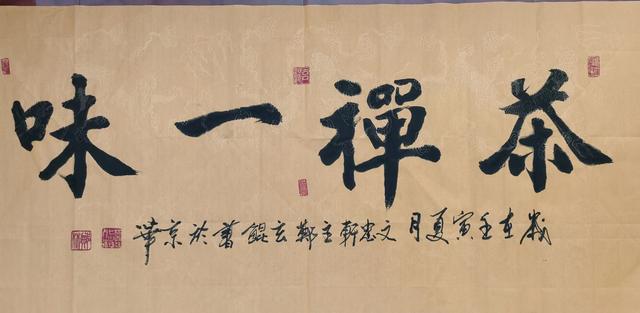 茶禪一味
歲在壬寅夏月文忠軒主鄭玄錕書於京華